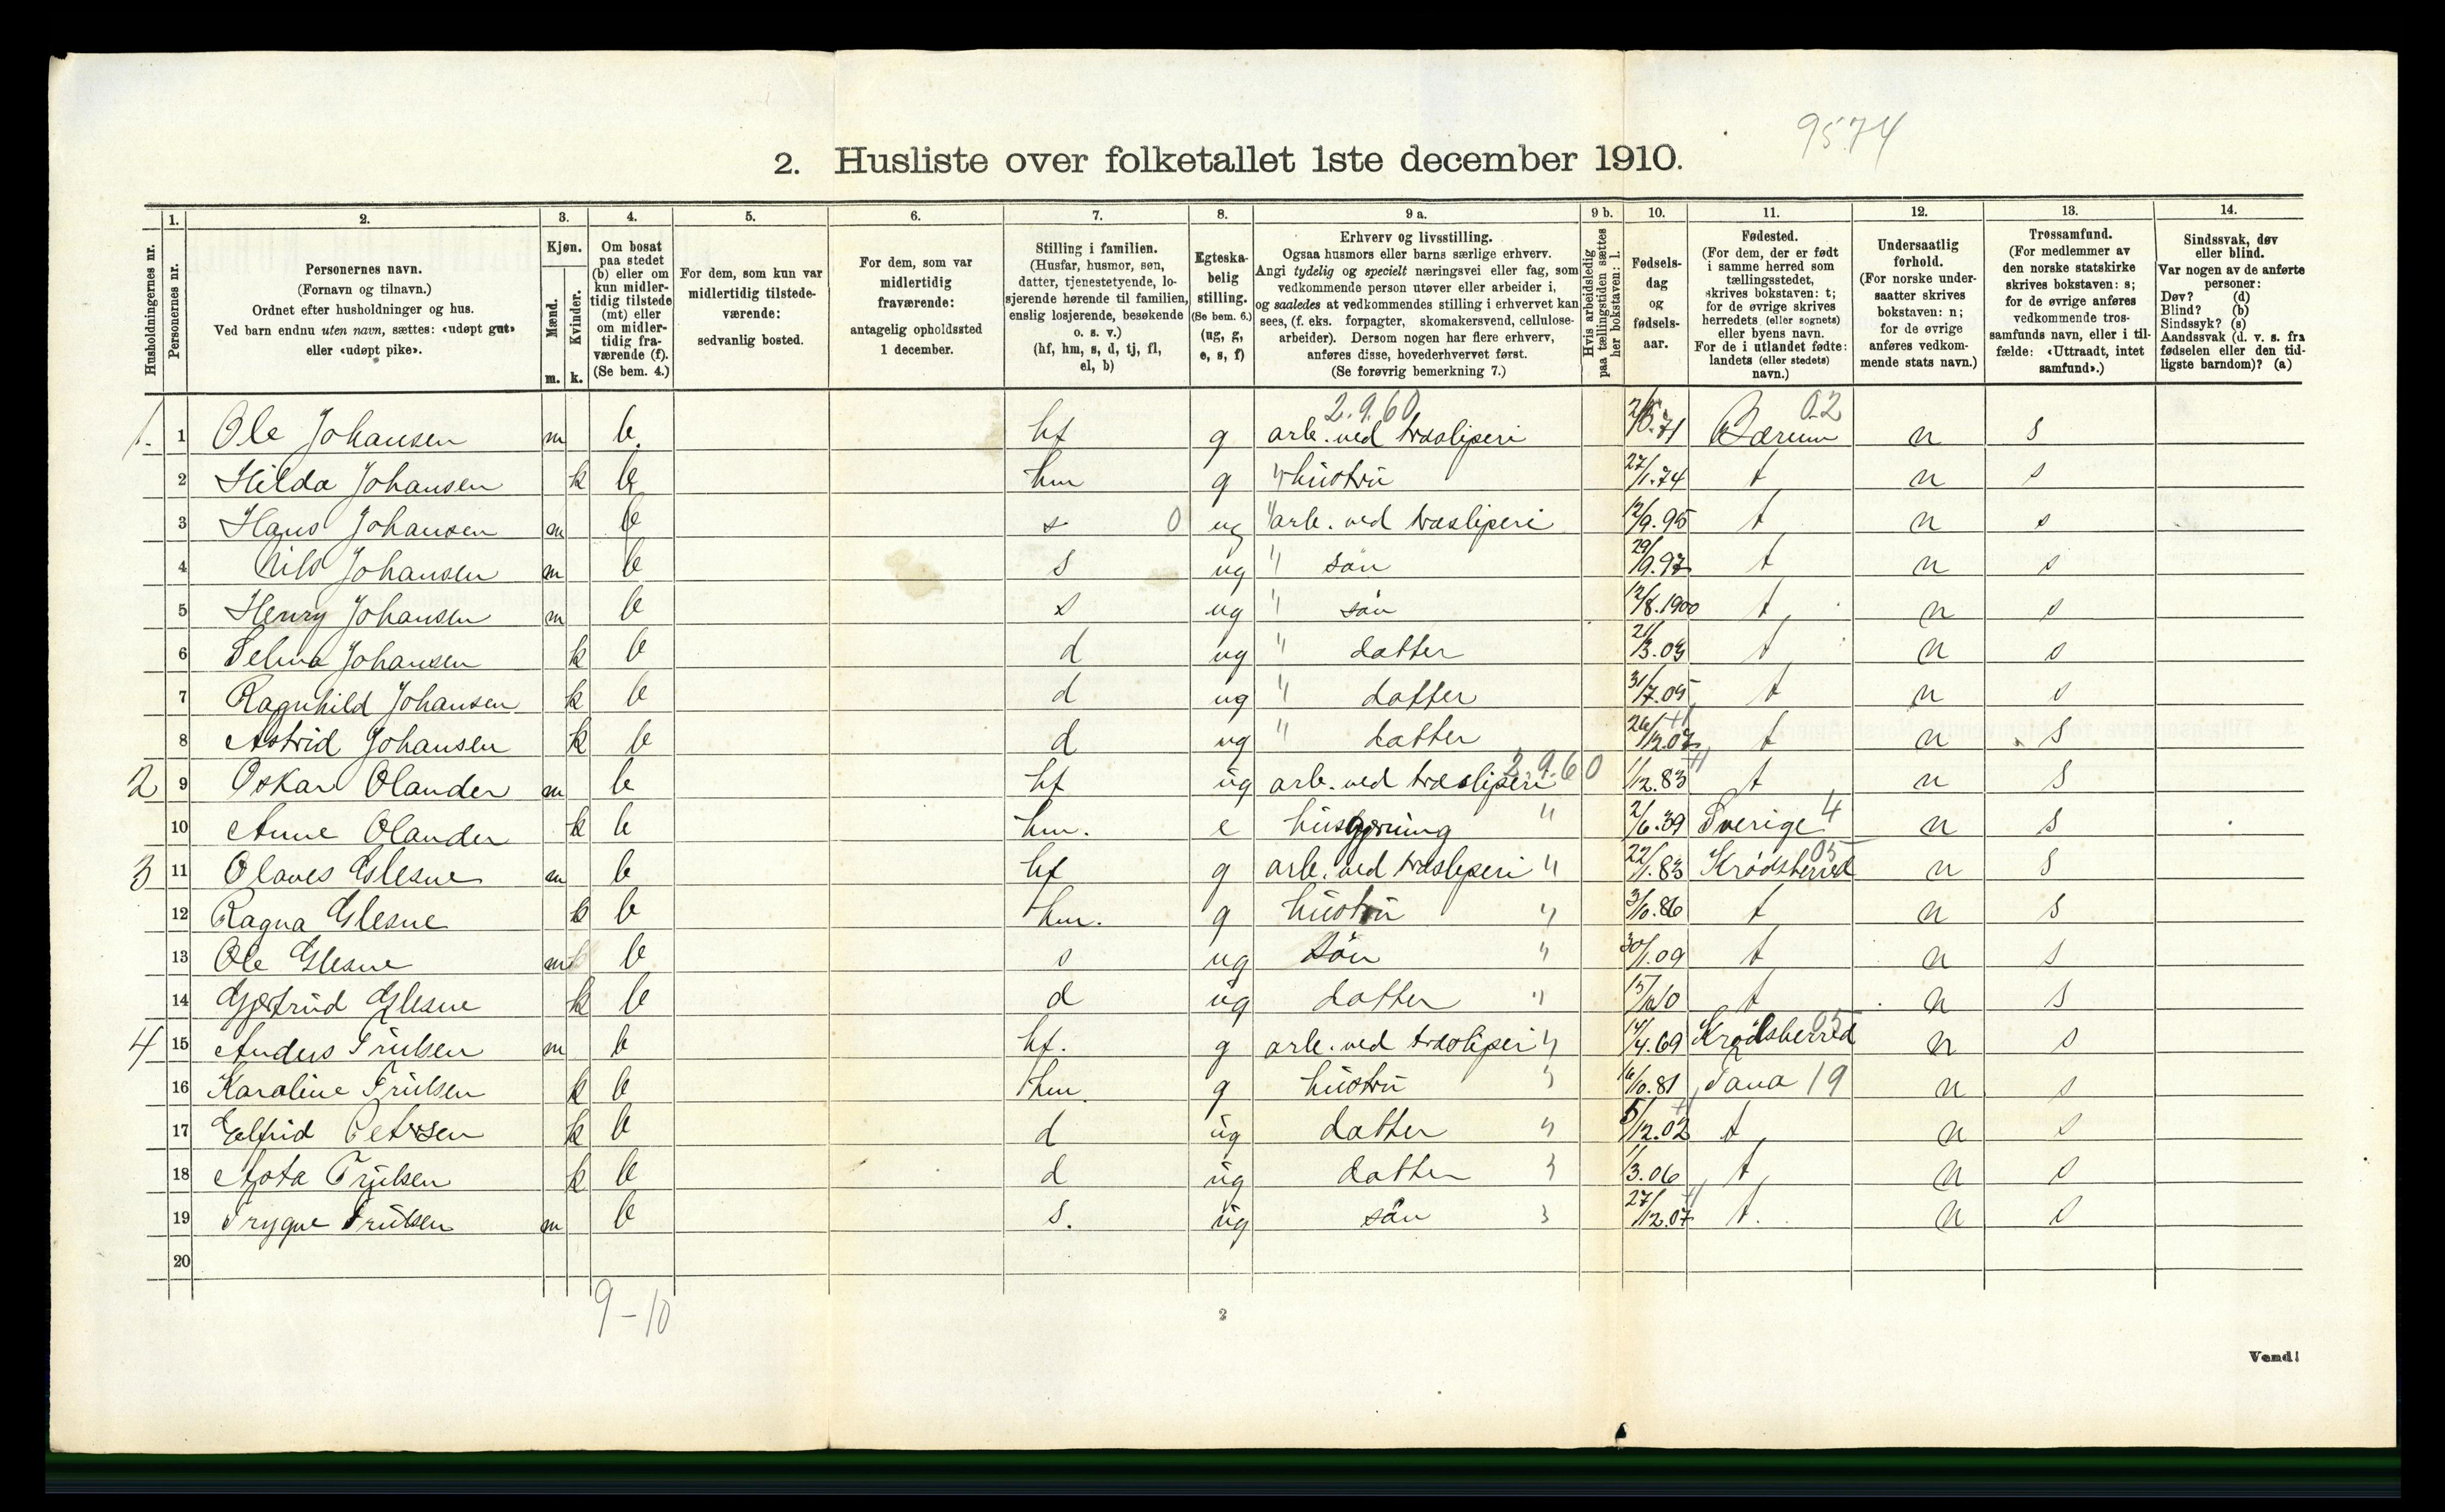 9574
2. Husliste over folketallet 1ste december 1910.
1. 2. 3. 4. 5. 6. 7. 8. 9 a. 9 b. 10. 11. 12. 13. 14.
Husholdningernes nr.
Personernes nr.
Personernes navn.
(Fornavn og tilnavn.)
Ordnet efter husholdninger og hus.
Ved barn endnu uten navn, sættes: «udøpt gut»
eller «udøpt pike».
Kjøn.
Mænd.
Kvinder.
m. k.
Om bosat
paa stedet
(b) eller om
kun midler-
tidig tilstede
(mt) eller
om midler-
tidig fra-
værende (f).
(Se bem. 4.)
For dem, som kun var
midlertidig tilstede-
værende:
sedvanlig bosted.
For dem, som var
midlertidig
fraværende:
antagelig opholdssted
1 december.
Stilling i familien.
(Husfar, husmor, søn,
datter, tjenestetyende, lo-
sjerende hørende til familien,
enslig losjerende, besøkende
o. s. v.)
(hf, hm, s, d, tj, fl,
el, b)
Egteska-
belig
stilling.
(Se bem. 6.)
(ug, g,
e, s, f)
Erhverv og livsstilling.
Ogsaa husmors eller barns særlige erhverv.
Angi tydelig og specielt næringsvei eller fag, som
vedkommende person utøver eller arbeider i,
og saaledes at vedkommendes stilling i erhvervet kan
sees, (f. eks. forpagter, skomakersvend, cellulose-
arbeider). Dersom nogen har flere erhverv,
anføres disse, hovederhvervet først.
(Se forøvrig bemerkning 7.)
Hvis arbeidsledig
paa tællingstiden sættes
her bokstaven: l.
Fødsels-
dag
og
fødsels-
aar.
Fødested.
(For dem, der er født
i samme herred som
tællingsstedet,
skrives bokstaven: t;
for de øvrige skrives
herredets (eller sognets)
eller byens navn.
For de i utlandet fødte:
landets (eller stedets)
navn.)
Undersaatlig
forhold.
(For norske under-
saatter skrives
bokstaven: n;
for de øvrige
anføres vedkom-
mende stats navn.)
Trossamfund.
(For medlemmer av
den norske statskirke
skrives bokstaven: s;
for de øvrige anføres
vedkommende tros-
samfunds navn, eller i til-
fælde: «Uttraadt, intet
samfund».)
Sindssvak, døv
eller blind.
Var nogen av de anførte
personer:
Døv? (d)
Blind? (b)
Sindssyk? (s)
Aandssvak (d. v. s. fra
fødselen eller den tid-
ligste barndom)? (a)
2.9.60 02
1. 1 Ole Johansen m b. hf g arb. ved træsliperi Bærum n s
2 Hilda Johansen k b hm g " hüstrü 27/1.74 t n s
3 Hans Johansen m b s 0 ug " arb. ved træsliperi 12/9.95 t n s
4 Nils Johansen m b s ug " sön 29/9.97 t n s
5 Henry Johansen m b s ug " sön 12/8.1900 t n s
6 Selma Johansen k b d ug " datter 21/3.03 t n s
7 Ragnhild Johansen k b d ug " datter 31/7.05 t n s
8 Astrid Johansen k b d ug " datter 26/12.07 t n s
2 9 Oskar Olander m b hf üg arb. ved træsliperi 2.9.60 1/12.83 t n s
10 Anne Olander k b hm. e hüsgjerning " 2/6.39 Sverige 4 n s
3 11 Olaves Glesne m b hf g arb. ved træsliperi " 22/1.83 Krødsherred 05 n s
12 Ragna Glesne k b hm. g hüstrü " 3/10.86 t n s
13 Ole Glesne m b s ug sön " 30/1.09 t n s
14 Gjertrüd Glesne k b d üg datter " t n s
4 15 Anders Trülsen m b hf. g arb. ved træsliperi " 14/4.69 Krødsherred 05 n s
16 Karoline Trülsen k b hm. g hüstrü " 16/10.81 Tana 19 n s
17 Elfrid Petersen k b d üg datter " 5/12.02 t n s
18 Asta Trülsen k b d üg datter " 1/3.06 t n s
19 Trygve Trülsen m b s. üg sön " 27/12.07 t. n s
20
9-10
2
Vend!